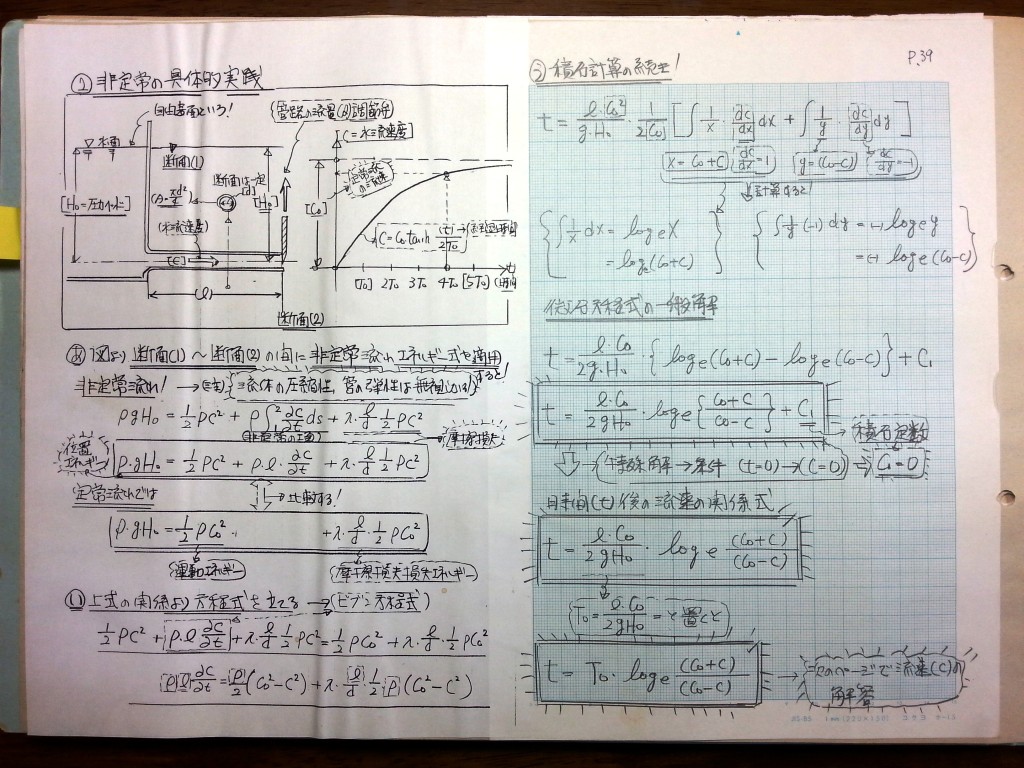 ② 非定常の具体的実践
自由表面という!
水面
断面(1)
断面は一定
[d]
[H₀=圧力ヘッド]
[H₀]
(水=流速度)
[C]
(l)
断面(2)
管路の流量(Q)調節弁
C=水=流速度
[C₀]
定常流の
C=C₀ tanh (t)/2T₀
[T₀] 2T₀ 3T₀ 4T₀ [5T₀]
あ 図より 断面(1)〜断面(2)の間に非定常流れエネルギー式を適用すると!
非定常流れ! → 流体の圧縮性、管の弾性は無視
ρgH₀ = 1/2 ρC² + ρ∫₁² ∂C/∂t ds + λ·l/d·1/2 ρC²
位置エネルギー
摩擦損失
ρ·gH₀ = 1/2 ρC² + ρ·l·∂C/∂t + λ·l/d·1/2 ρC²
定常流れでは
比較する!
ρ·gH₀ = 1/2 ρC₀² + λ·l/d·1/2 ρC₀²
運動エネルギー
い 上式の関係より方程式を立てる →
1/2 ρC² + ρ·l ∂C/∂t + λ·l/d·1/2 ρC² = 1/2 ρC₀² + λ·l/d·1/2 ρC₀²
ρl ∂C/∂t = ρ/2 (C₀²−C²) + λ·l/d·1/2 ρ(C₀²−C²)
P.39
う 積分計算の続き!
t = l·C₀²/g·H₀ · 1/2C₀ [∫1/x · dc/dx dx + ∫1/y · dc/dy dy]
x=C₀+C dc/dx=1 y=(C₀−C) dc/dy=−1
計算すると!
∫1/x dx = loge x
= loge(C₀+C)
∫1/y (−1) dy = (−) loge y
= (−) loge(C₀−C)
微分方程式の一般解
t = l·C₀/2g·H₀ · {loge(C₀+C) − loge(C₀−C)} + C₁
t = l·C₀/2gH₀ · loge{C₀+C/C₀−C} + C₁
積分定数
特殊解→条件 (t=0)→(C=0) C₁=0
時間(t)後の流速の関係式
t = l·C₀/2gH₀ · loge (C₀+C)/(C₀−C)
T₀ = l·C₀/2gH₀ = と置くと
t = T₀·loge (C₀+C)/(C₀−C)
→ 次のページで流速(C)の